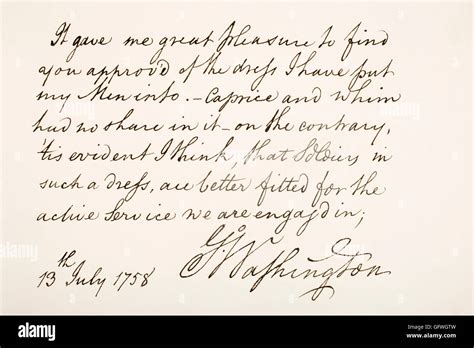 It gave me great pleasure to find
you approv'd of the dress I have put
my Men into. – Caprice and whim
had no share in it – on the contrary,
'tis evident I think, that Soldiers in
such a dress, are better fitted for the
active Service we are engag'd in;
G:Washington
13th July 1758
alamy
Image ID: GFWGTW
www.alamy.com